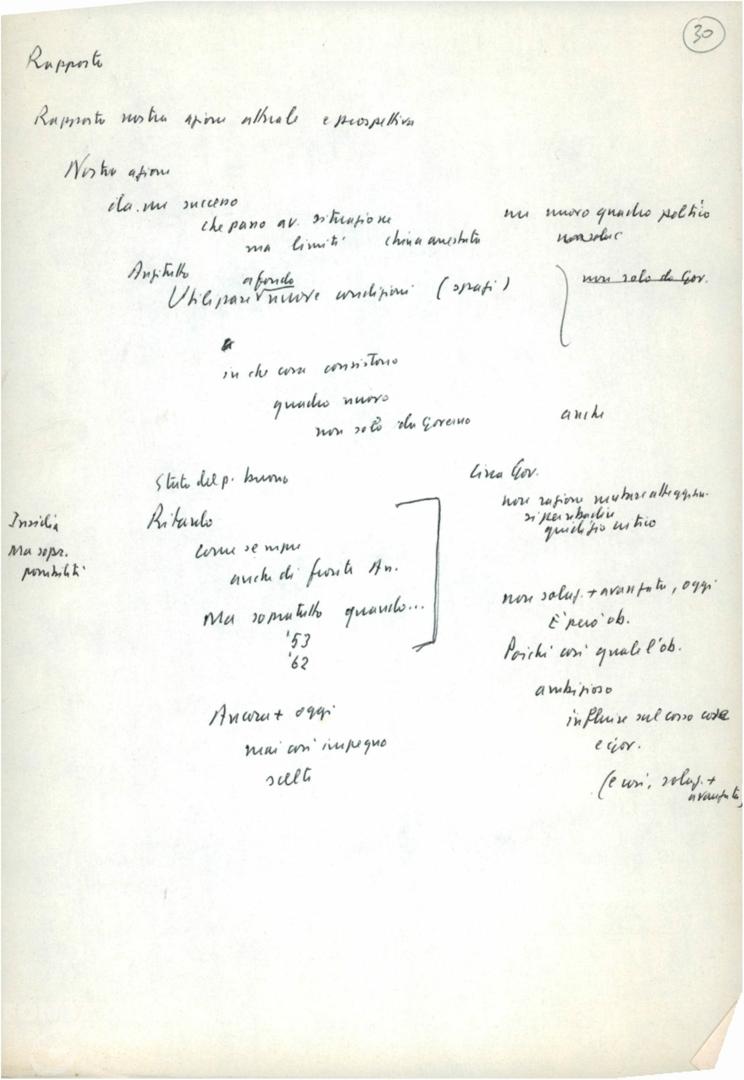 30
Rapporto
Rapporto nostra azione attuale e prospettiva
Nostra azione
successo
che passo av. situazione
ma limiti
un nuovo quadro politico
Anzitutto
a fondo
Utilizzare nuove condizioni (spazi)
non solo da Gov.
in che cosa consistono
quadro nuovo
non solo da Governo
anche
Stato del p. buono
Circa Gov.
non ragione mutare atteggiam.
si può ribadire
giudizio critico
Insidia
Ma sopr.
possibilità
Ritardo
come sempre
anche di fronte An.
Ma sopratutto quando...
'53
'62
non soluz. + avanzata, oggi
È però ob.
Poiché così quale l'ob.
ambizioso
influire sul corso cose
e Gov.
(e così, soluz. +
avanzata)
Ancora + oggi
mai così impegno
scelte